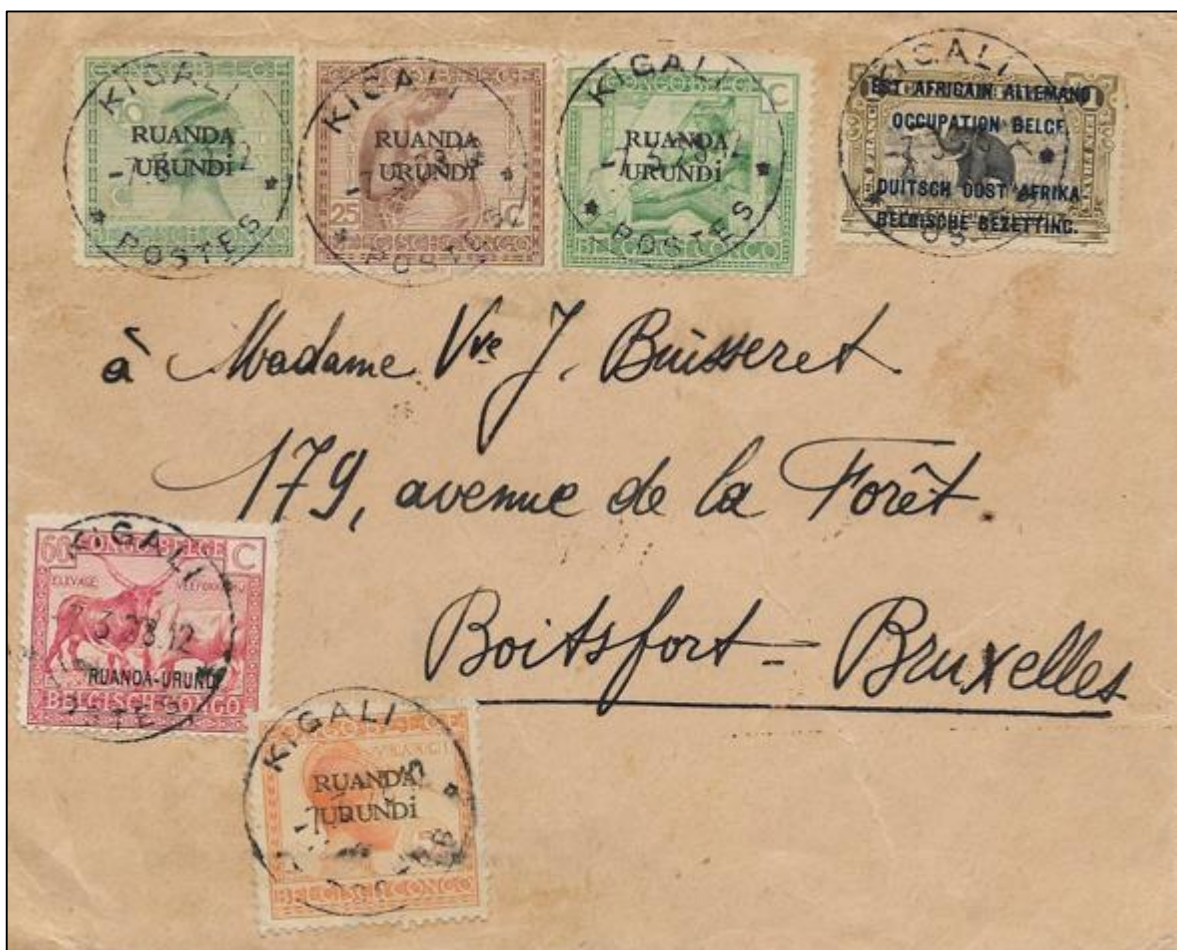 KIGALI
10
RUANDA
URUNDI
POSTES
KIGALI
RUANDA
URUNDI
25 C
POSTES
KIGALI
C
RUANDA
URUNDI
POSTES
KIGALI
EST AFRICAIN ALLEMAND
OCCUPATION BELGE.
DUITSCH OOST AFRIKA
BELGISCHE BEZETTING.
à Madame Vve J. Buisseret
179, avenue de la Forêt
Boitsfort - Bruxelles
KIGALI
60 CONGO BELGE C
ELEVAGE
3.28.12
RUANDA-URUNDI
BELGISCH CONGO
KIGALI
RUANDA
URUNDI
BELGISCH CONGO